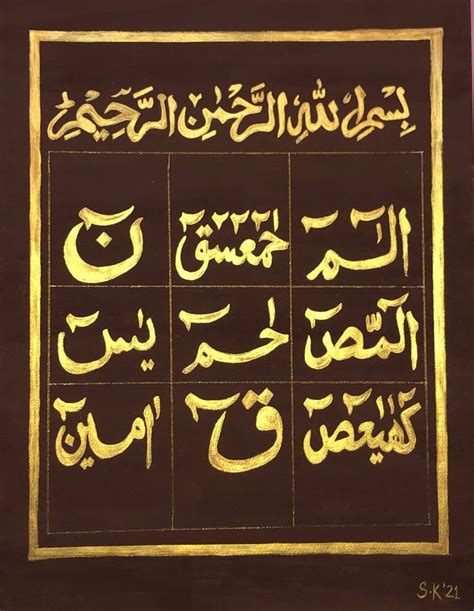 بِسْمِ اللهِ الرَّحْمٰنِ الرَّحِيْمِ
الٓمٓ حٰمٓعٓسٓقٓ نٓ
الٓمّٓصٓ حٰمٓ يٰسٓ
كٓهٰيٰعٓصٓ قٓ اٰمين
S.K'21